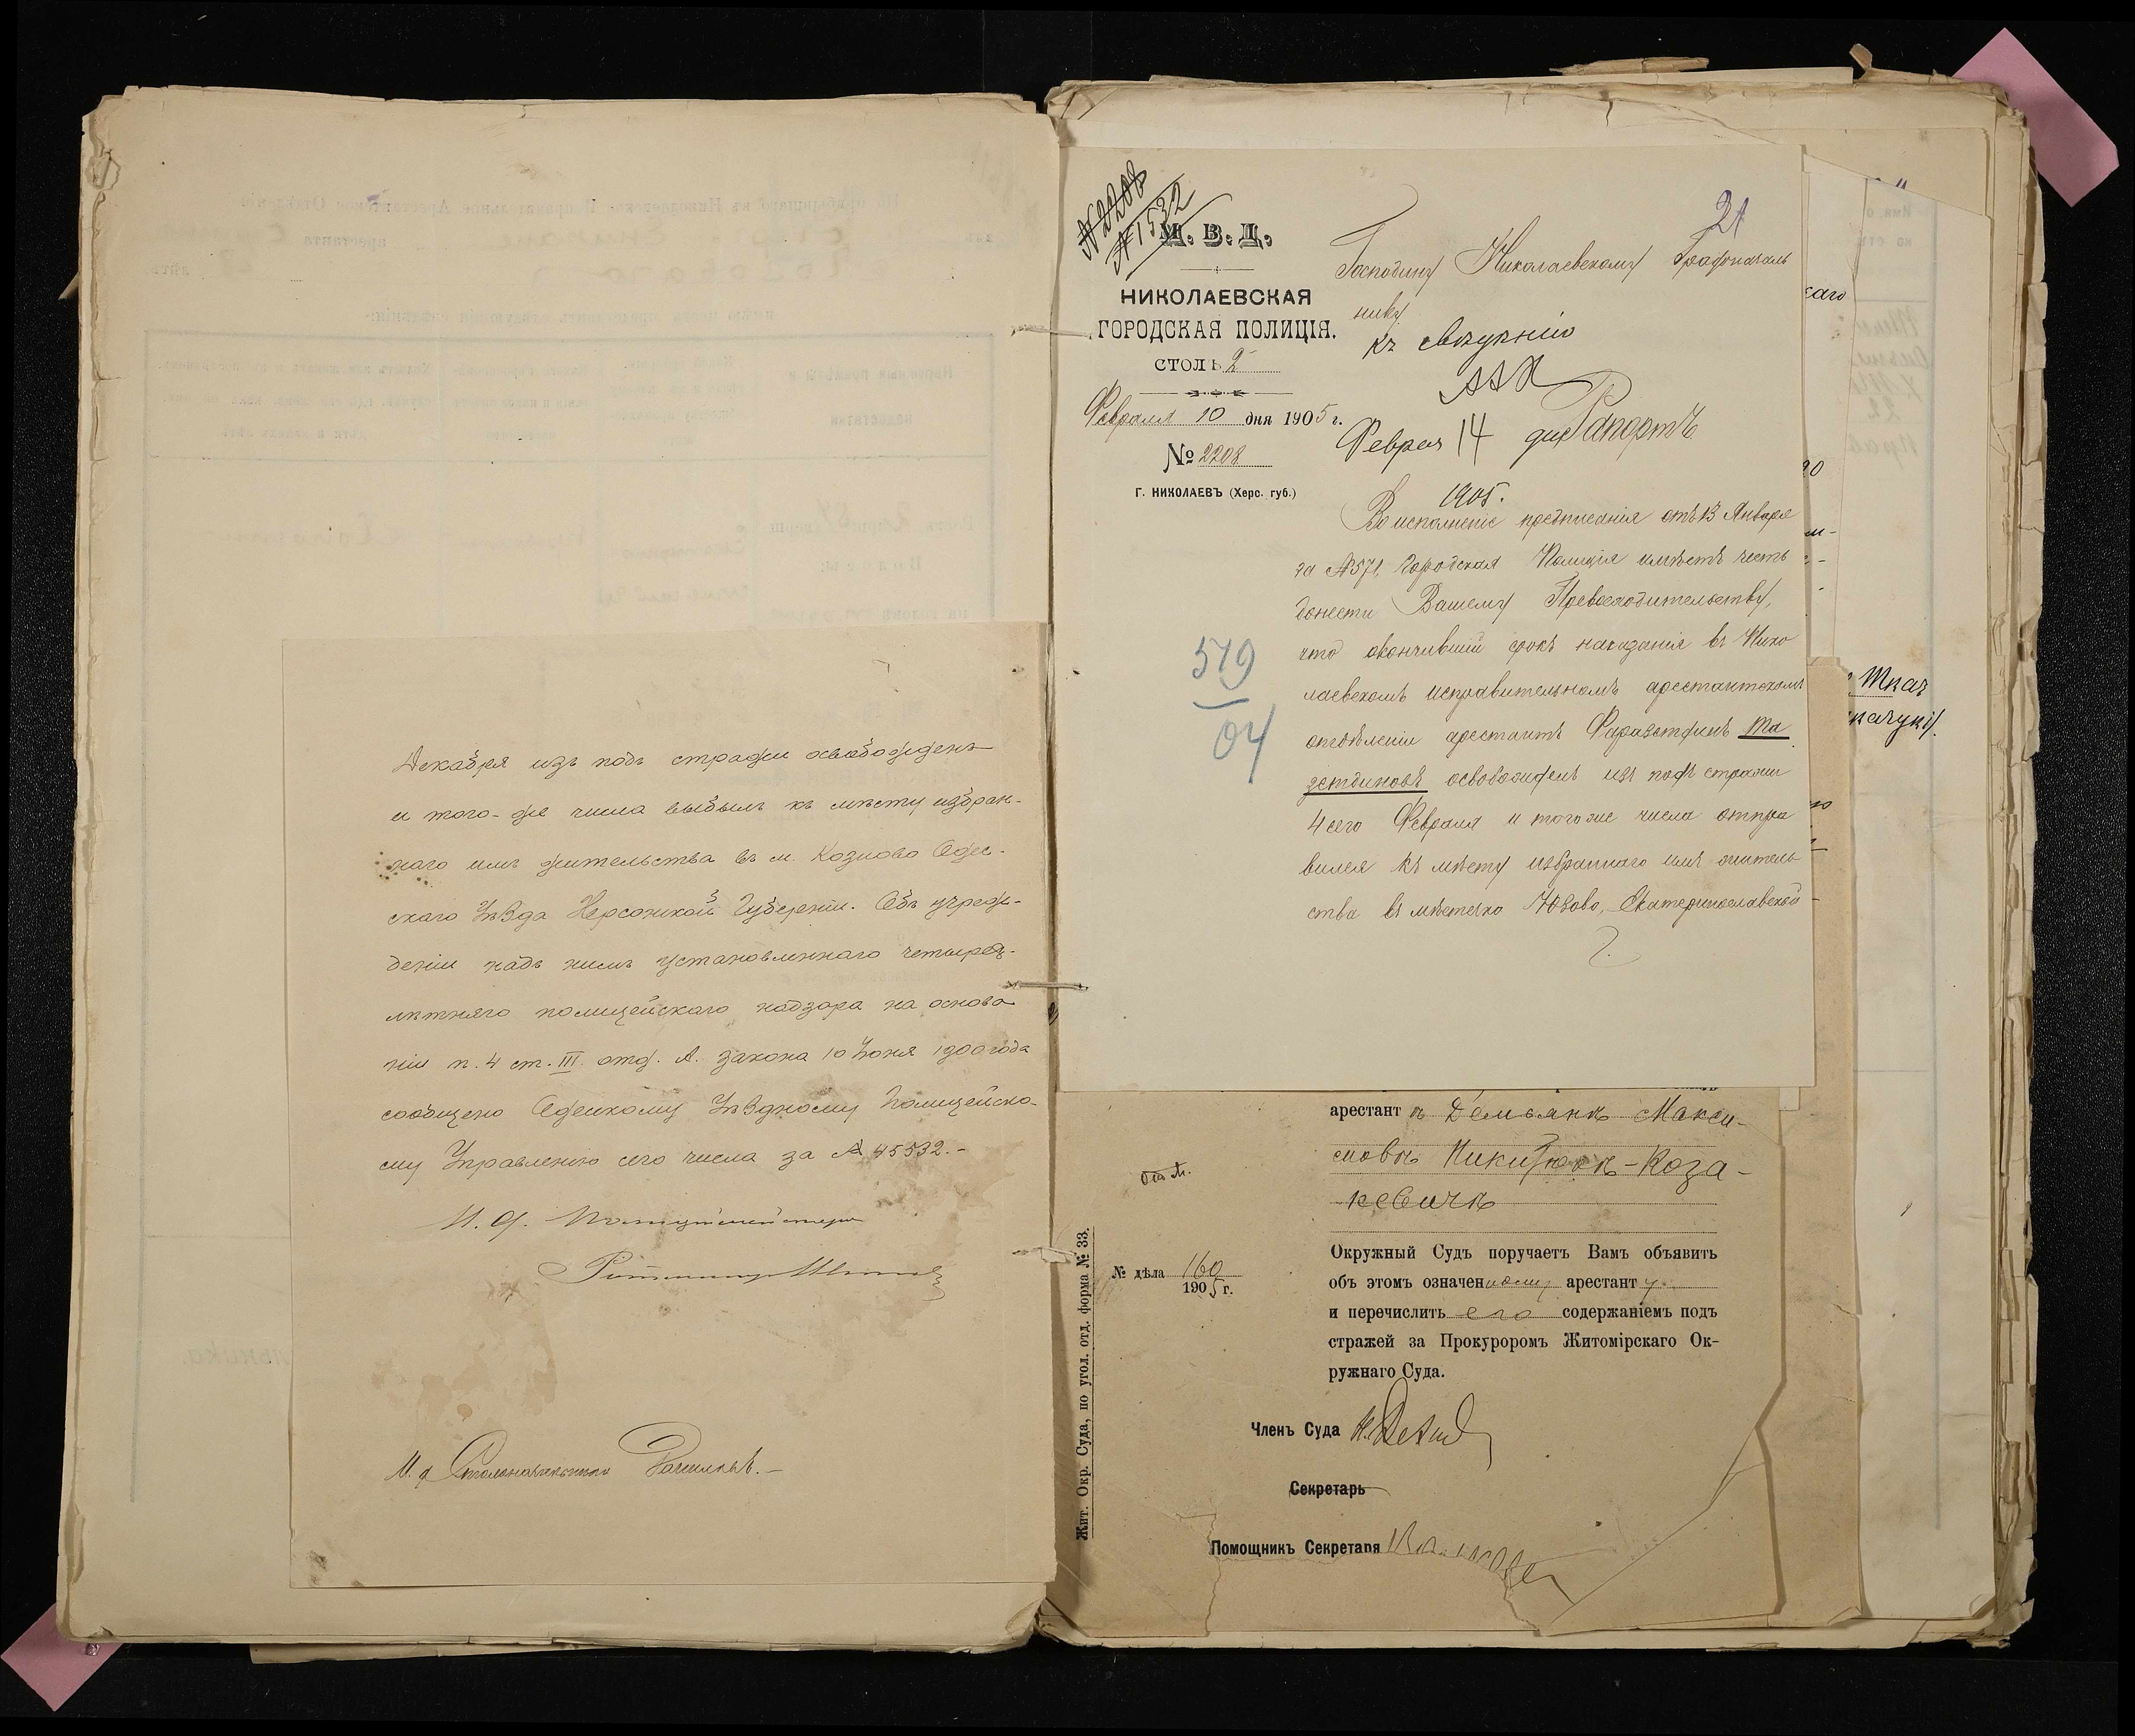 Декабря изъ подъ стражи освобожденъ
и того-же числа выбылъ къ мѣсту избран-
наго имъ жительства въ м. Козново Одес-
скаго Уѣзда Херсонской Губерніи. Объ учреж-
деніи надъ нимъ установленнаго четырех-
лѣтняго полицейскаго надзора на основа
ніи п. 4 ст. III. отд. А. закона 10 Іюня 1900 года
сообщено Одесскому Уѣздному Полицейско-
му Управленію сего числа за № 45532.-
И. д. Полиціймейстера
Ротмистръ
И. д. Столоначальника
№ 2208
№ 1532
М. В. Д.
НИКОЛАЕВСКАЯ
ГОРОДСКАЯ ПОЛИЦІЯ.
СТОЛЪ 2
Февраля 10 дня 1905 г.
№ 2208
Г. НИКОЛАЕВЪ (Херс. губ.)
21
Господину Николаевскому Градоначаль
нику
къ свѣдѣнію
Феврал 14 дня
1905.
Рапортъ
Во исполненіе предписанія отъ 13 Января
за №571, Городская Полиція имѣетъ честь
донести Вашему Превосходительству,
что окончившій срокъ наказанія въ Нико
лаевскомъ исправительномъ арестантскомъ
отдѣленіи арестантъ Фаразетдинъ Та
зетдиновъ освобожденъ изъ подъ стражи
4 сего Февраля и того же числа отпра
вился къ мѣсту избраннаго имъ житель
ства въ мѣстечко Юзово, Екатеринославской
г.
519
04
скаго
Ткач
арестантъ Демьянъ Макси-
мовъ Никитюкъ-Коза-
кевичъ
Окружный Судъ поручаетъ Вамъ объявить
объ этомъ означенному арестанту
и перечислить его содержаніемъ подъ
стражей за Прокуроромъ Житомірскаго Ок-
ружнаго Суда.
№ дѣла 160
1905 г.
Жит. Окр. Суда, по угол. отд. форма № 33.
Членъ Суда
Секретарь
Помощникъ Секретаря